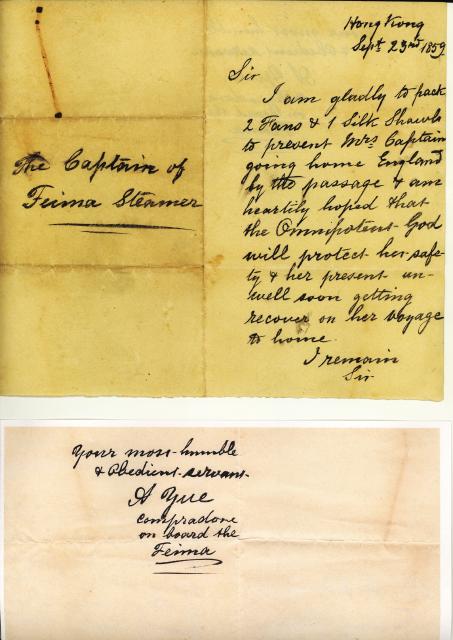 The Captain of
Feima Steamer
Hong Kong
Sept 23rd 1859
Sir
I am gladly to pack
2 Fans & 1 Silk Shawls
to prevent Mrs Captain
going home England
by the passage & am
heartily hoped that
the Omnipotent God
will protect her safe-
ty & her present un-
well soon getting
recover on her voyage
to home.
I remain
Sir
Your most humble
& Obedient servant
A Yue
compradore
on board the
Feima